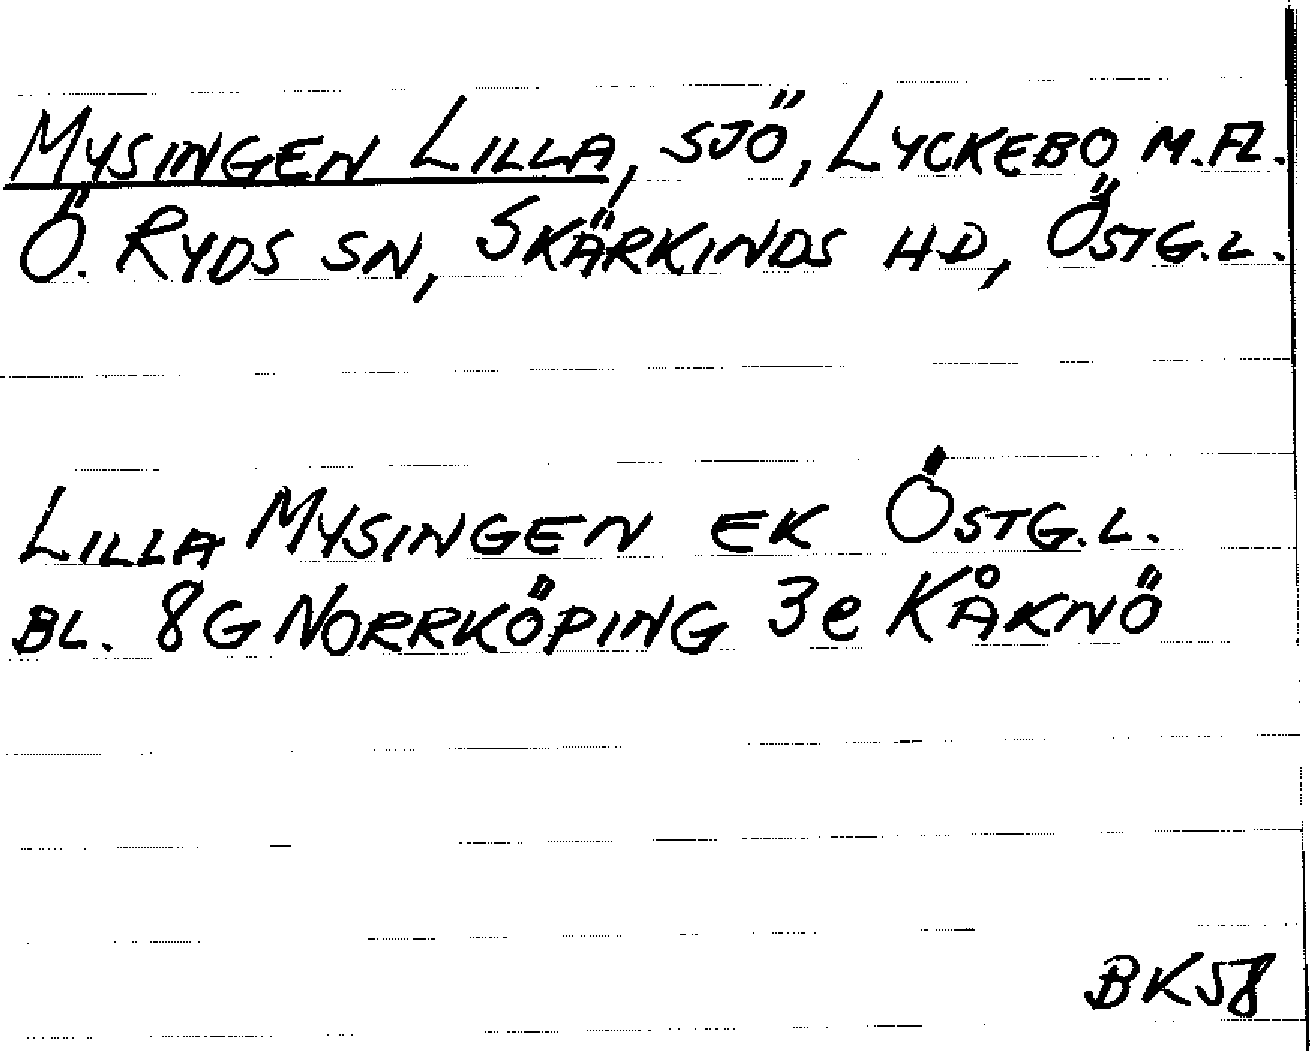 MYSINGEN LILLA, SJÖ, LYCKEBO M.FL.
Ö. RYDS SN, SKÄRKINDS HD, ÖSTG.L.
LILLA MYSINGEN EK ÖSTG.L.
BL. 8G NORRKÖPING 3e KÅKNÖ
BK58